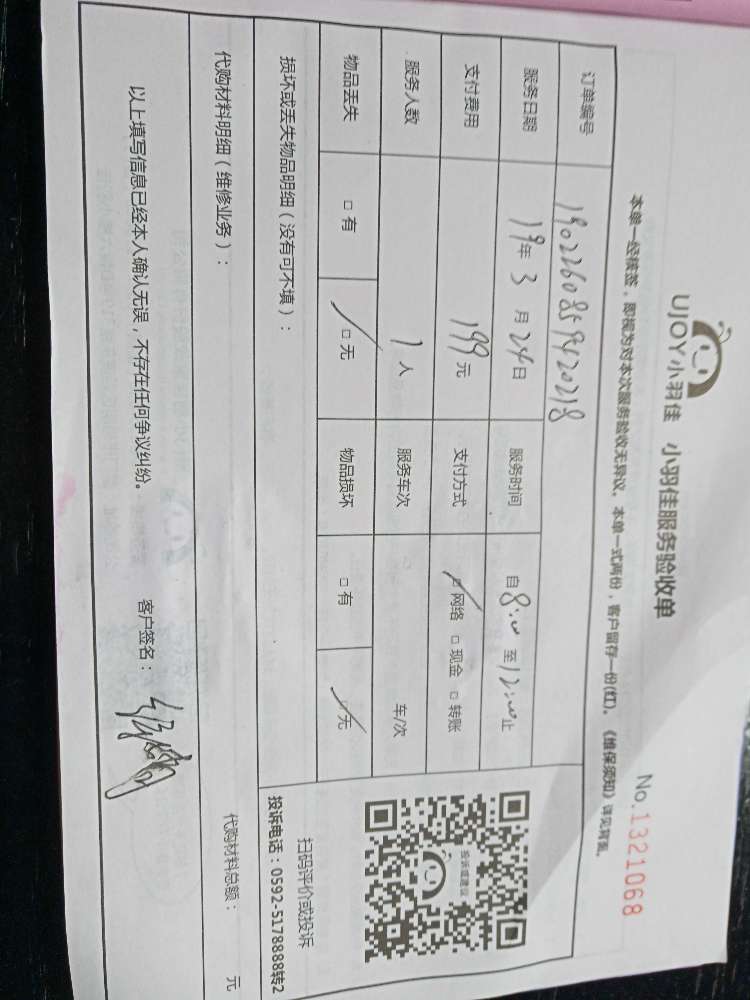 UJOY小羽佳 小羽佳服务验收单 No.1321068
本单一经核签，即视为对本次服务验收无异议。本单一式两份，客户留存一份(红)。《维保须知》详见背面。
订单编号 190226085942018
服务日期 19年3月24日 服务时间 自8:00至12:00止
支付费用 199元 支付方式 □网络 □现金 □转账
服务人数 1人 服务车次 车/次
物品丢失 □有 □无 物品损坏 □有 □无
损坏或丢失物品明细（没有可不填）：
投诉或建议
扫码评价或投诉
投诉电话：0592-5178888转2
代购材料明细（维修业务）： 代购材料总额： 元
以上填写信息已经本人确认无误，不存在任何争议纠纷。 客户签名：